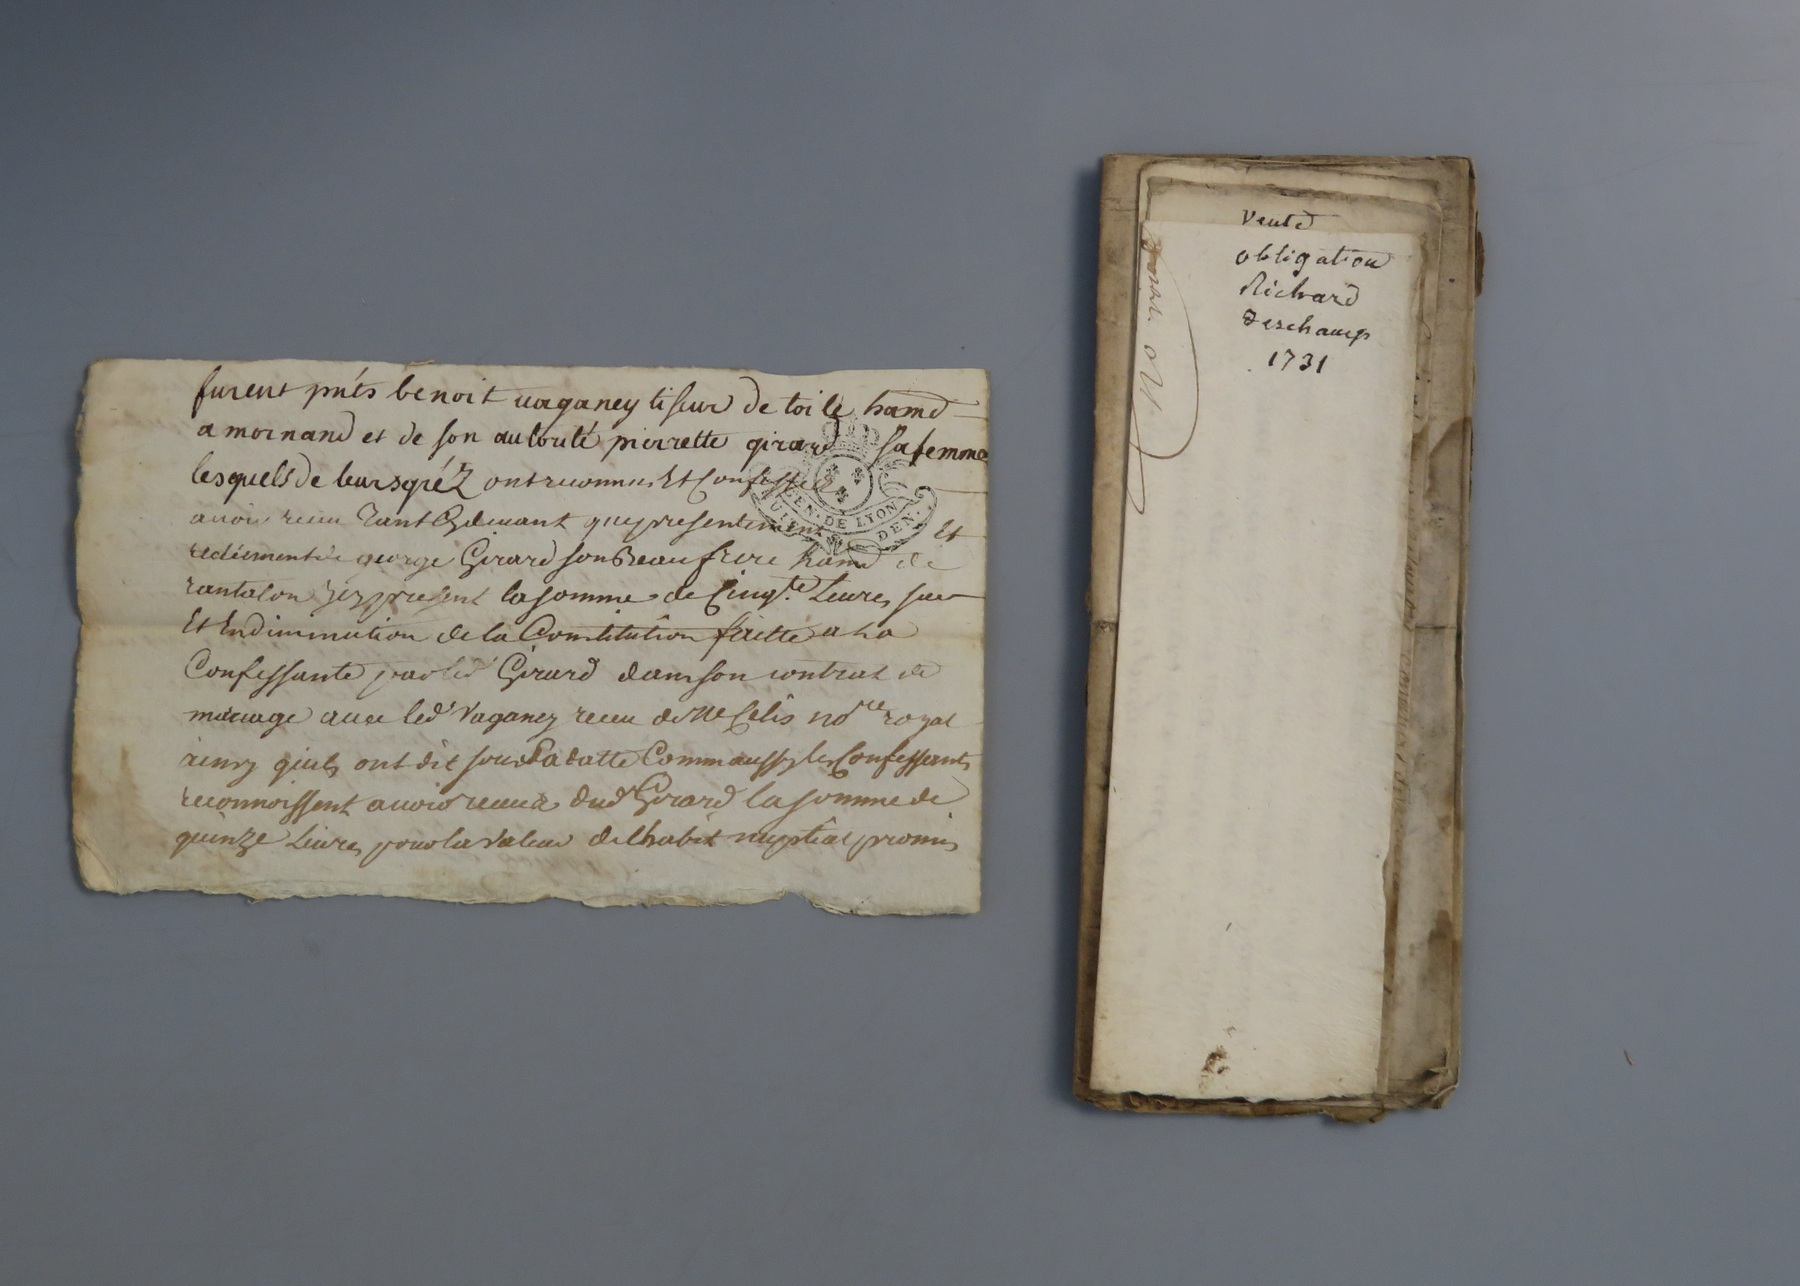 furent pnts benoit vaganey tiseur de toile hamd
a mornand et de son autorité pierrette girard sa femme
lesquels de leurs gréz ont reconnus Et Confessé
avoir receu tant Cydevant que presentement Et
reellement de george Girard son Beau frere hamd de
rantalon icy present la somme de Cinqte Livres sur
Et En diminution de la Constitution faitte a la
Confessante par led Girard dans son contrat de
mariage avec led Vaganey receu de Me Celis nore royal
ainsy quils ont dit sous Sa datte Comm aussy les Confessants
reconnoissent avoir receu dud Girard la somme de
quinze Livres pour la valeur de lhabit nuptial promis
GEN. DE LYON
DEN.
Vente
obligation
Richard
deschamp
1731